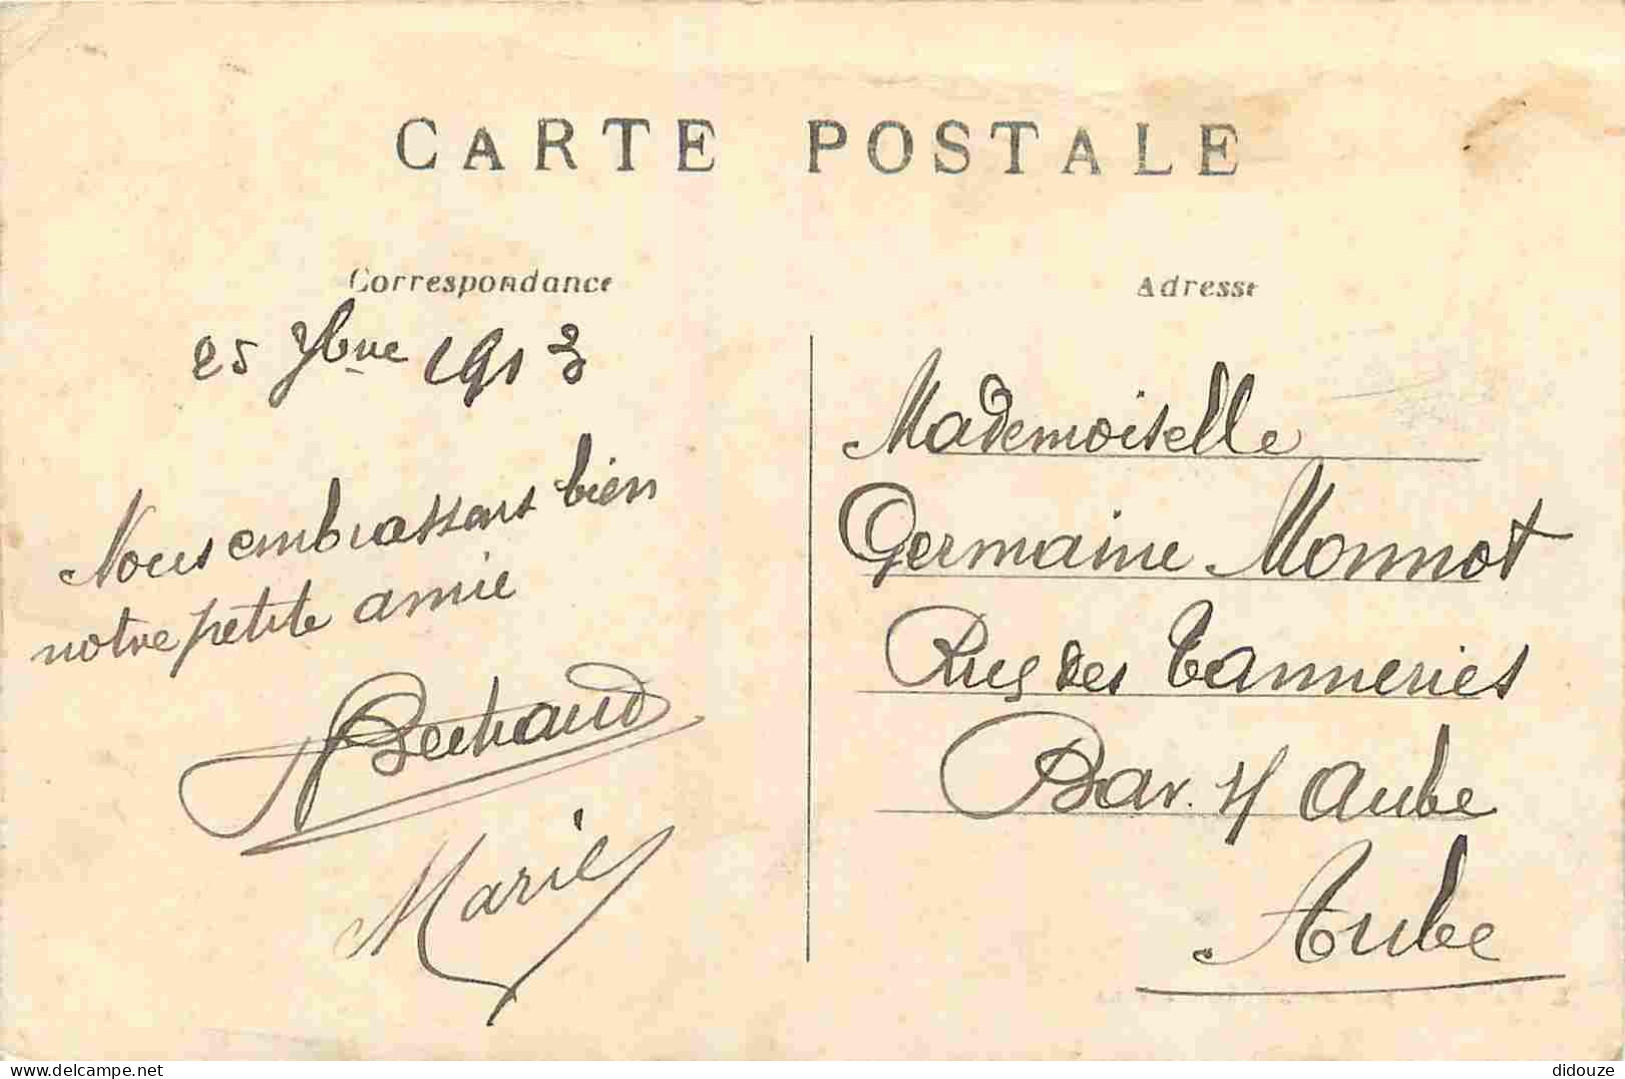 CARTE POSTALE
Correspondance
25 7bre 1913
Nous embrassons bien
notre petite amie
Bertrand
Marie
Adresse
Mademoiselle
Germaine Monnot
Rue des Tanneries
Bar s/ Aube
Aube
didouze